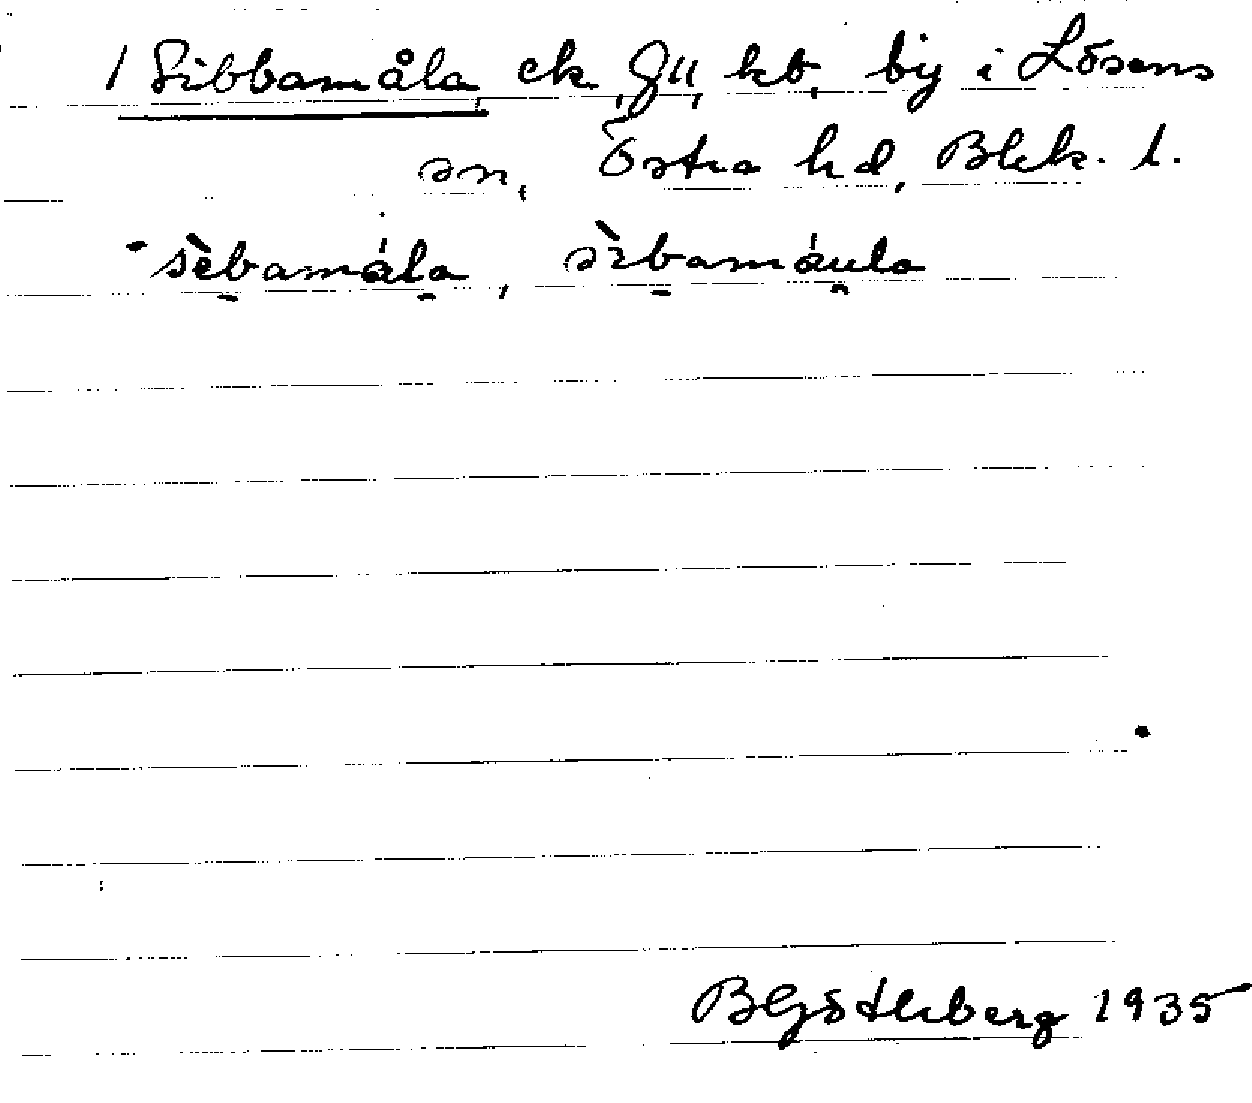 1 Sibbamåla, ek, gu, kb, by i Lösens
sn, Östra hd, Blek. l.
sèbamála, sìbamáula
BGötlkberg 1935